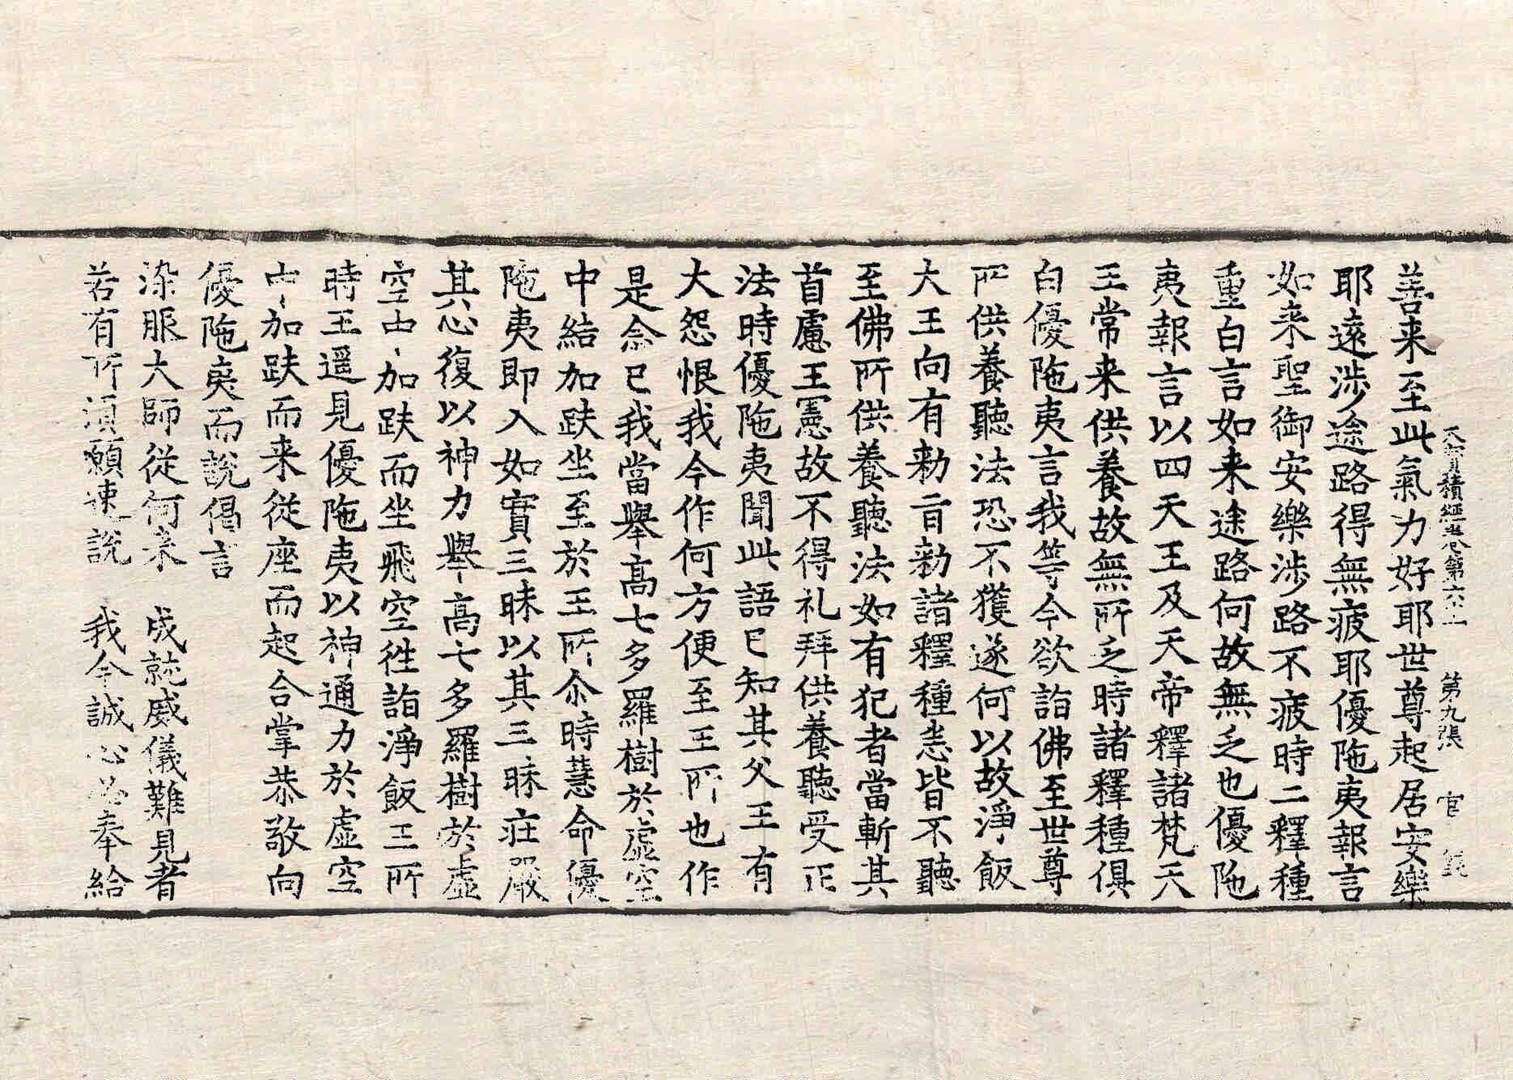 大寶積經卷第六十一　第九張　官
善来至此氣力好耶世尊起居安樂
耶遠涉途路得無疲耶優陁夷報言
如来聖御安樂涉路不疲時二釋種
重白言如来途路何故無乏也優陁
夷報言以四天王及天帝釋諸梵天
王常来供養故無所乏時諸釋種俱
白優陁夷言我等今欲詣佛至世尊
所供養聽法恐不獲遂何以故淨飯
大王向有勑旨勑諸釋種悉皆不聽
至佛所供養聽法如有犯者當斬其
首慮王憲故不得礼拜供養聽受正
法時優陁夷聞此語已知其父王有
大怨恨我今作何方便至王所也作
是念已我當舉高七多羅樹於虛空
中結加趺坐至於王所尒時慧命優
陁夷即入如實三昧以其三昧莊嚴
其心復以神力舉高七多羅樹於虛
空中加趺而坐飛空往詣淨飯王所
時王遥見優陁夷以神通力於虛空
中加趺而来從座而起合掌恭敬向
優陁夷而說偈言
染服大師從何来　成就威儀難見者
若有所須願速說　我今誠心必奉給